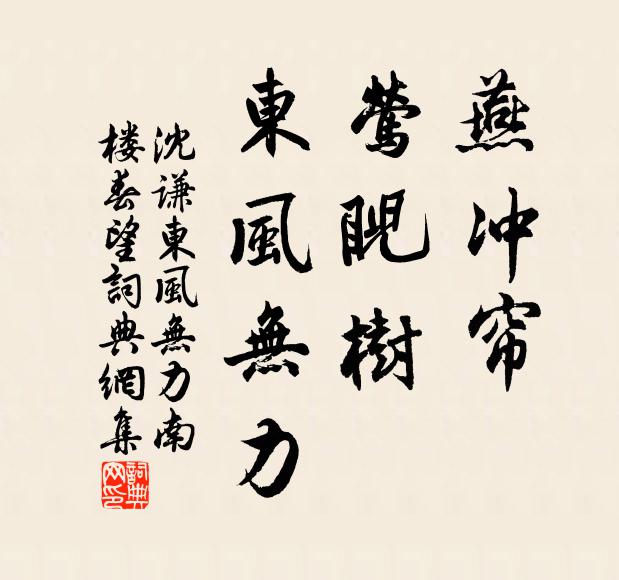 燕冲帘
莺睍樹
東風無力
沈谦東風無力南
楼春望詞典網集
詞典网印